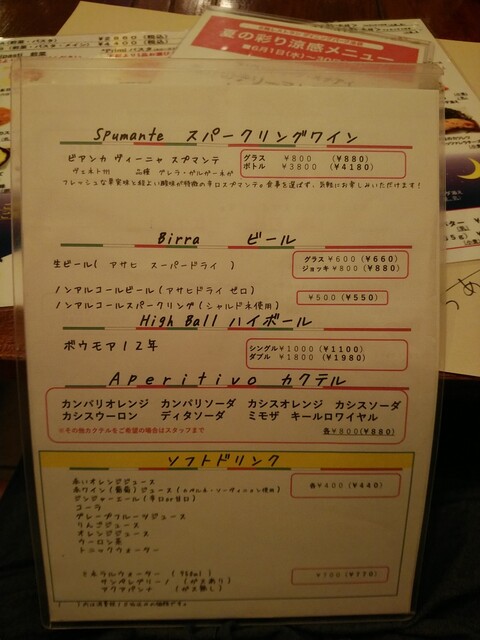 夏の彩り涼感メニュー
Spumante スパークリングワイン
ビアンカ ヴィーニャ スプマンテ
グラス ¥800 (¥880)
ボトル ¥3800 (¥4180)
ヴェネト州 品種 グレラ・ガルガーネガ
フレッシュな果実味と程よい酸味が特徴の辛口スプマンテ。食事を選ばず、気軽にお楽しみいただけます!
Birra ビール
生ビール( アサヒ スーパードライ )
グラス ¥600 (¥660)
ジョッキ ¥800 (¥880)
ノンアルコールビール(アサヒドライ ゼロ)
ノンアルコールスパークリング(シャルドネ使用)
¥500 (¥550)
High Ball ハイボール
ボウモア12年
シングル ¥1000 (¥1100)
ダブル ¥1800 (¥1980)
Aperitivo カクテル
カンパリオレンジ カンパリソーダ カシスオレンジ カシスソーダ
カシスウーロン ディタソーダ ミモザ キールロワイヤル
※その他カクテルをご希望の場合はスタッフまで
各¥800(¥880)
ソフトドリンク
赤いオレンジジュース
赤ワイン(葡萄)ジュース(カベルネ・ソーヴィニョン使用)
ジンジャーエール(辛口or甘口)
コーラ
グレープフルーツジュース
りんごジュース
オレンジジュース
ウーロン茶
トニックウォーター
各¥400 (¥440)
ミネラルウォーター
サンペレグリーノ (ガスあり)
アクアパンナ (ガス無し)
¥700 (¥770)